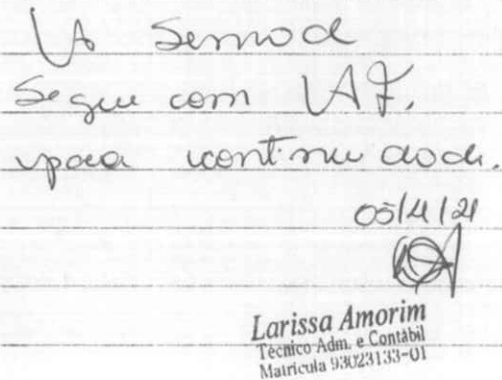 À Semod
Segue com AF.
para continuidade.
05/4/21
Larissa Amorim
Técnico Adm. e Contábil
Matrícula 93023133-01